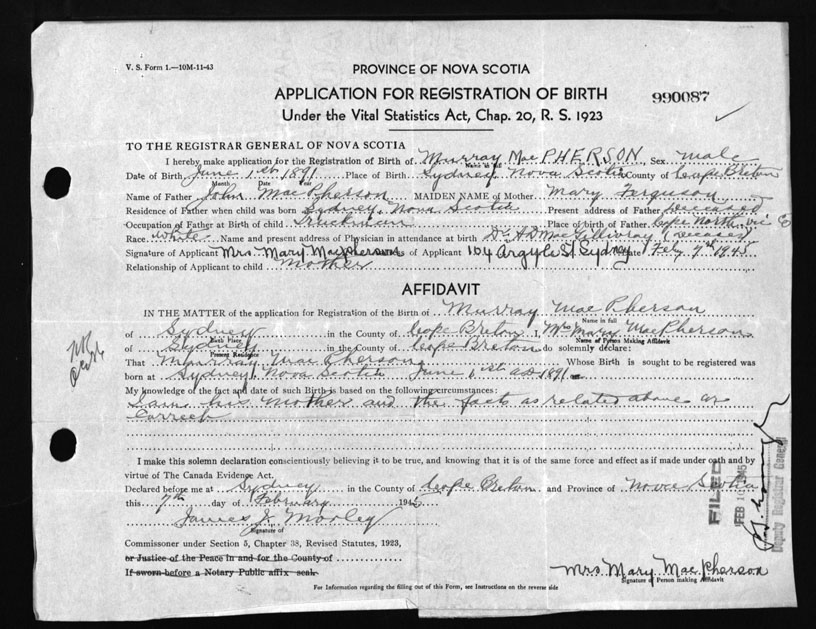 V. S. Form 1.—10M-11-43
PROVINCE OF NOVA SCOTIA
APPLICATION FOR REGISTRATION OF BIRTH
990087
Under the Vital Statistics Act, Chap. 20, R. S. 1923
TO THE REGISTRAR GENERAL OF NOVA SCOTIA
I hereby make application for the Registration of Birth of Murray MacPHERSON, Sex Male
Name in full
Date of Birth June 1st 1891 Place of Birth Sydney Nova Scotia County of Cape Breton
Month Date Year
Name of Father John MacPherson MAIDEN NAME of Mother Mary Ferguson
Residence of Father when child was born Sydney, Nova Scotia Present address of Father Deceased
Occupation of Father at Birth of child Place of birth of Father Cape North
Race White Name and present address of Physician in attendance at birth Dr. (Deceased)
Signature of Applicant Mrs Mary Macpherson of Applicant 104 Argyle St Sydney Date Feby 7th 1945
Relationship of Applicant to child Mother
AFFIDAVIT
IN THE MATTER of the application for Registration of the Birth of Murray MacPherson
Name in full
of Sydney in the County of Cape Breton I, Mrs Mary MacPherson
Birth Place Name of Person Making Affidavit
of Sydney in the County of Cape Breton do solemnly declare:
Present Residence
That Murray MacPherson Whose Birth is sought to be registered was
born at Sydney, Nova Scotia June 1st AD 1891
My knowledge of the fact and date of such Birth is based on the following circumstances:
I am his mother and the facts as related above are
Correct
I make this solemn declaration conscientiously believing it to be true, and knowing that it is of the same force and effect as if made under oath and by
virtue of The Canada Evidence Act.
Declared before me at Sydney in the County of Cape Breton and Province of Nova Scotia
this 7th day of February 1945
James J. Morley
Signature of
Commissioner under Section 5, Chapter 38, Revised Statutes, 1923,
or Justice of the Peace in and for the County of
If sworn before a Notary Public affix seal.
Mrs Mary MacPherson
Signature of Person making Affidavit
For Information regarding the filling out of this Form, see Instructions on the reverse side
FILED
FEB 1945
Deputy Registrar General